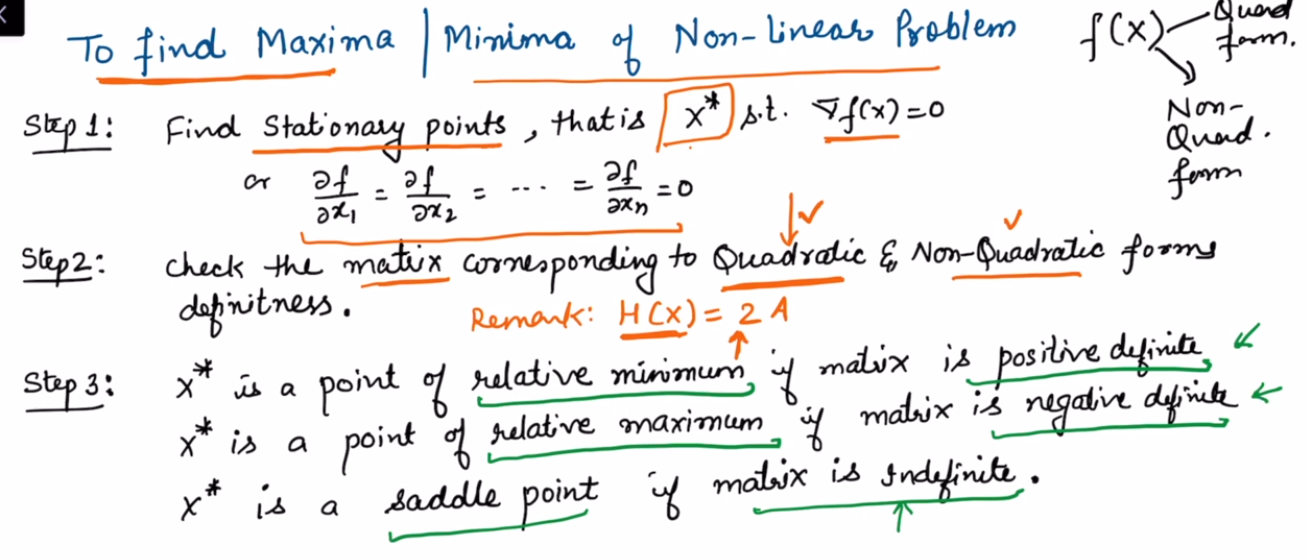 To find Maxima | Minima of Non-linear Problem
f(x) Quad form.
Non-Quad. form
Step 1: Find Stationary points, that is x* s.t. ∇f(x)=0
or ∂f/∂x₁ = ∂f/∂x₂ = ... = ∂f/∂xₙ = 0
Step2: check the matrix corresponding to Quadratic & Non-Quadratic forms
definitness.
Remark: H(x) = 2A
Step 3: x* is a point of relative minimum, if matrix is positive definite,
x* is a point of relative maximum, if matrix is negative definite
x* is a saddle point if matrix is Indefinite.